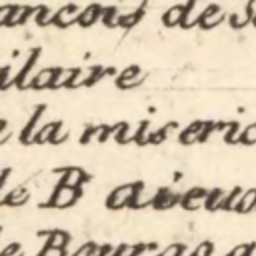 ancois de S
ilaire
la miseric
de B aieuo
de Bourgo